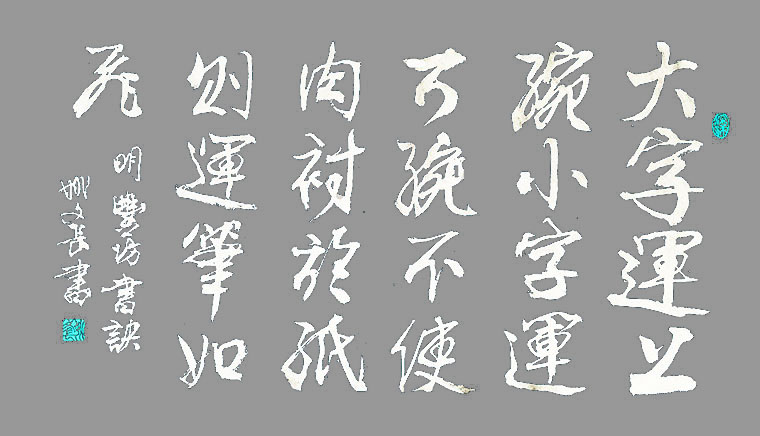 大字運上
腕小字運
下腕不使
肉衬於紙
則運筆如
飛
明豐坊書訣
姚文長書